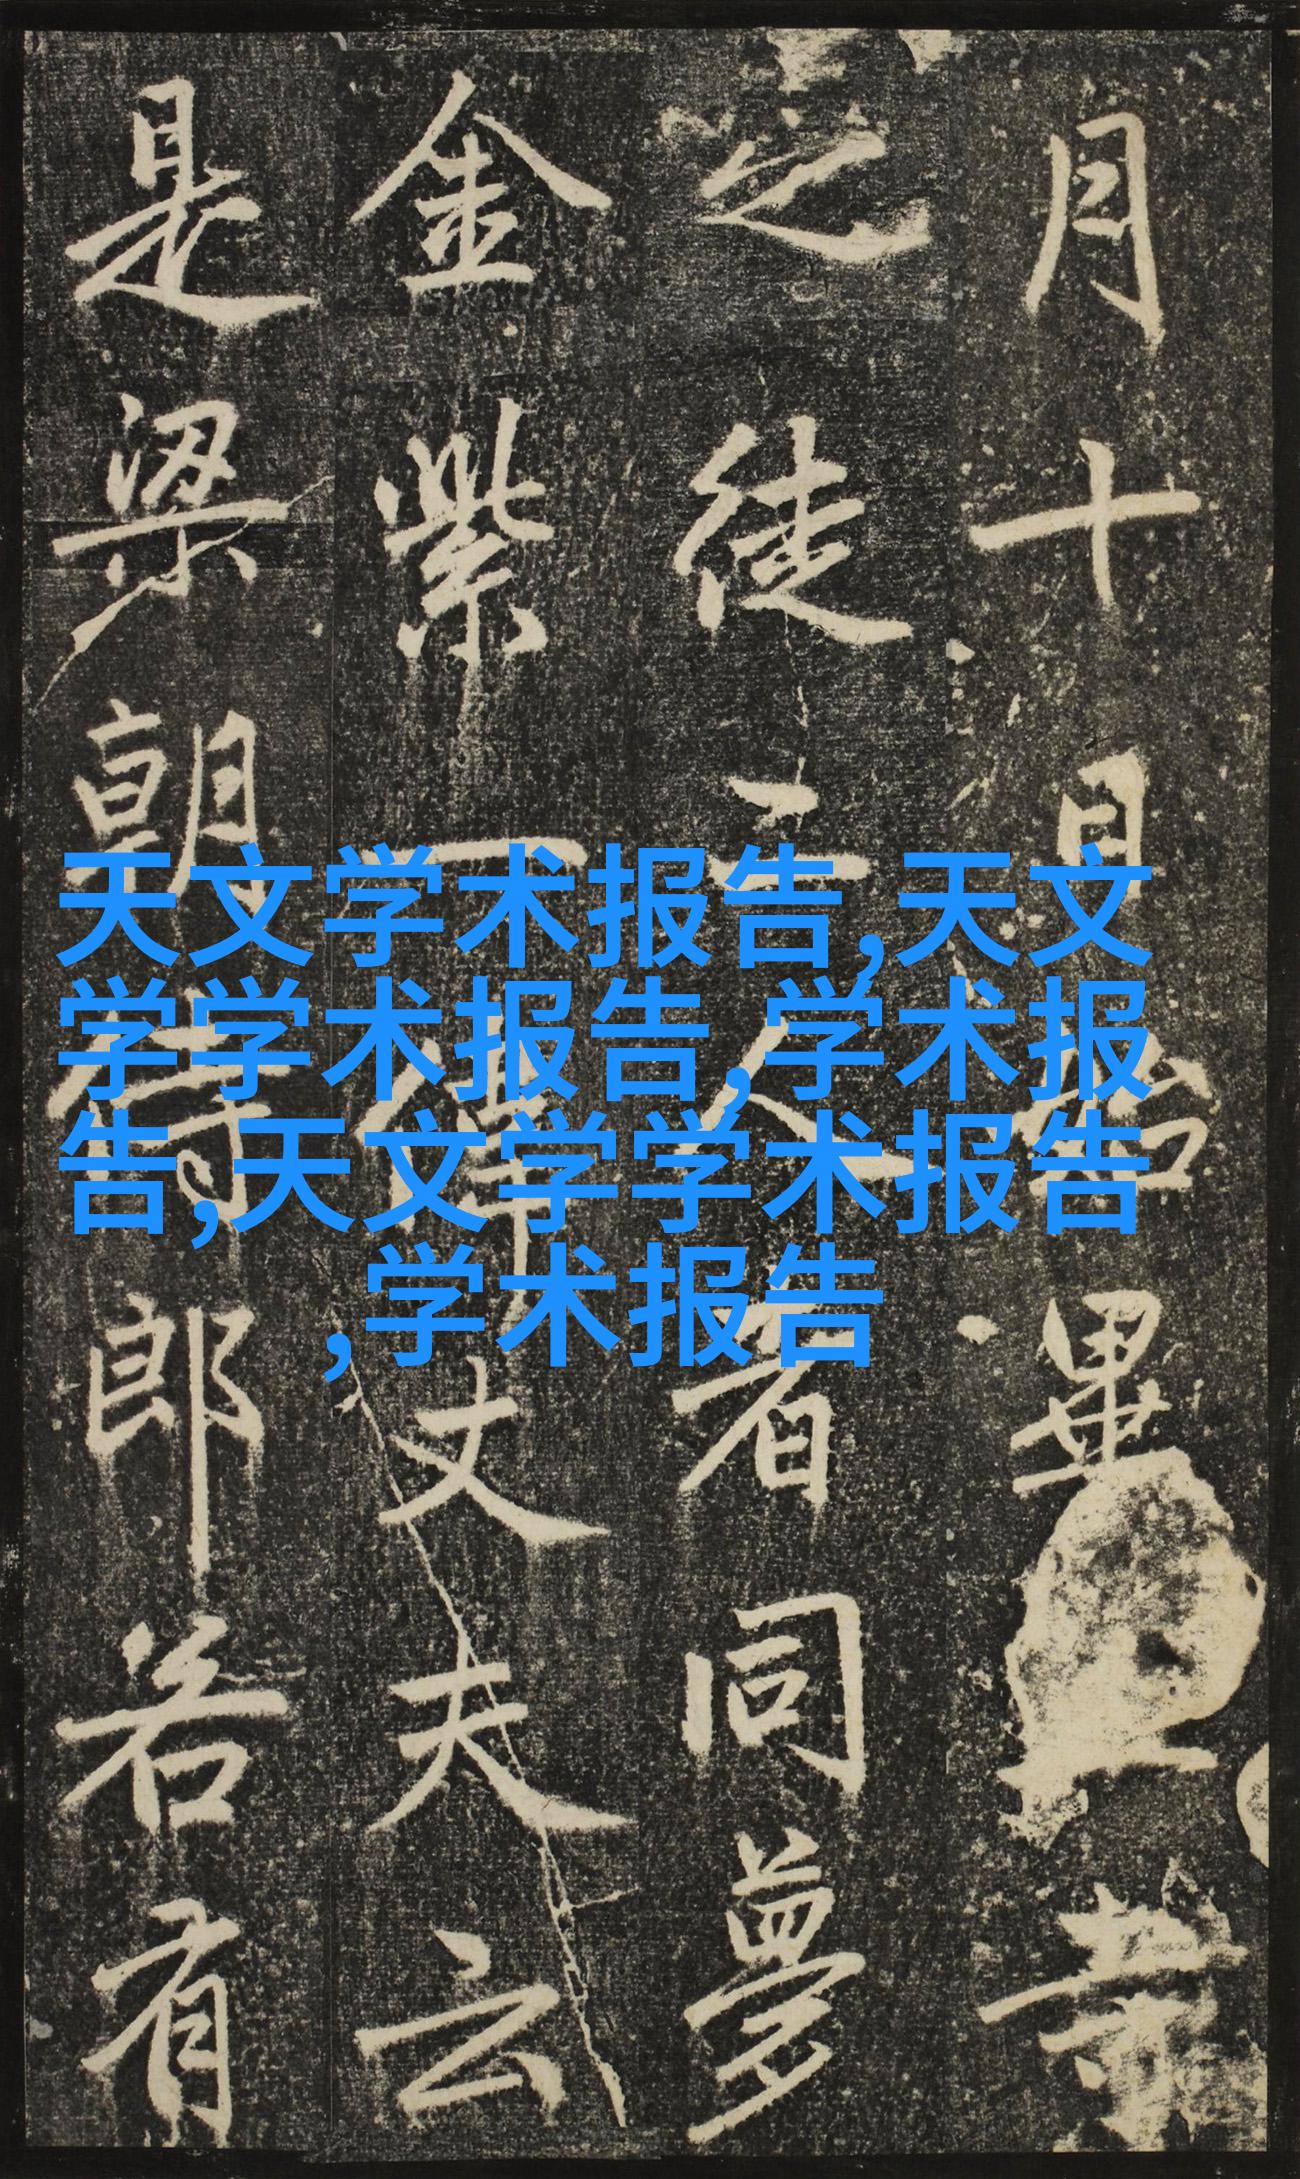 月十日始畢
之徒二人者同夢
金紫一偉丈夫云
是梁朝侍郎若有
天文学术报告,天文
学学术报告,学术报
告,天文学学术报告
,学术报告